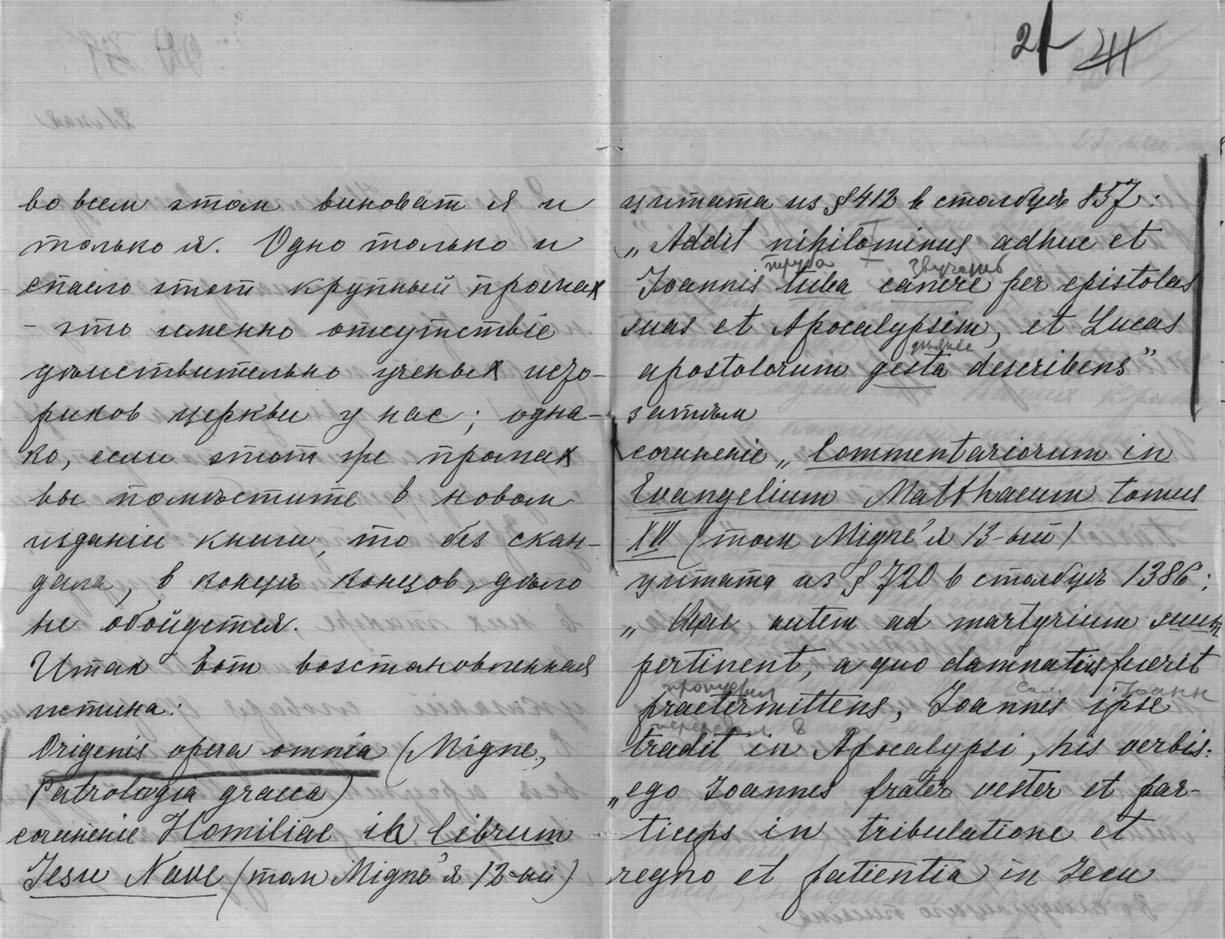 во всем этом виноват я и
только я. Одно только и
спасло этот крупный промах
- это именно отсутствіе
дѣйствительно ученых исто-
риков церкви у нас; одна-
ко, если этот же промах
вы помѣстите в новом
изданіи книги, то без скан-
дала, в концѣ концов, дѣло
не обойдется.
Итак вот возстановленная
истина:
Origenis opera omnia (Migne,
Patrologia graeca)
сочиненіе Homiliae in librum
Jesu Nave (том Migne'я 12-ый)
21
цитата из §412 в столбцѣ 857:
„Addit nihilominus adhuc et
труба звучанів
Ioannis tuba canere per epistolas
suas et Apocalypsim, et Lucas
дѣянія
apostolorum gesta describens"
затѣм
сочиненіе „Commentariorum in
Evangelium Matthaeum tomus
XVI (том Migne'я 13-ый)
цитата из §720 в столбцѣ 1386:
„Quae autem ad martyrium suum
pertinent, a quo damnatus fuerit
пропуская сам Іоанн
praetermittens, Ioannes ipse
передал в
tradit in Apocalypsi, his verbis:
„ego Ioannes frater vester et par-
ticeps in tribulatione et
regno et patientia in Iesu